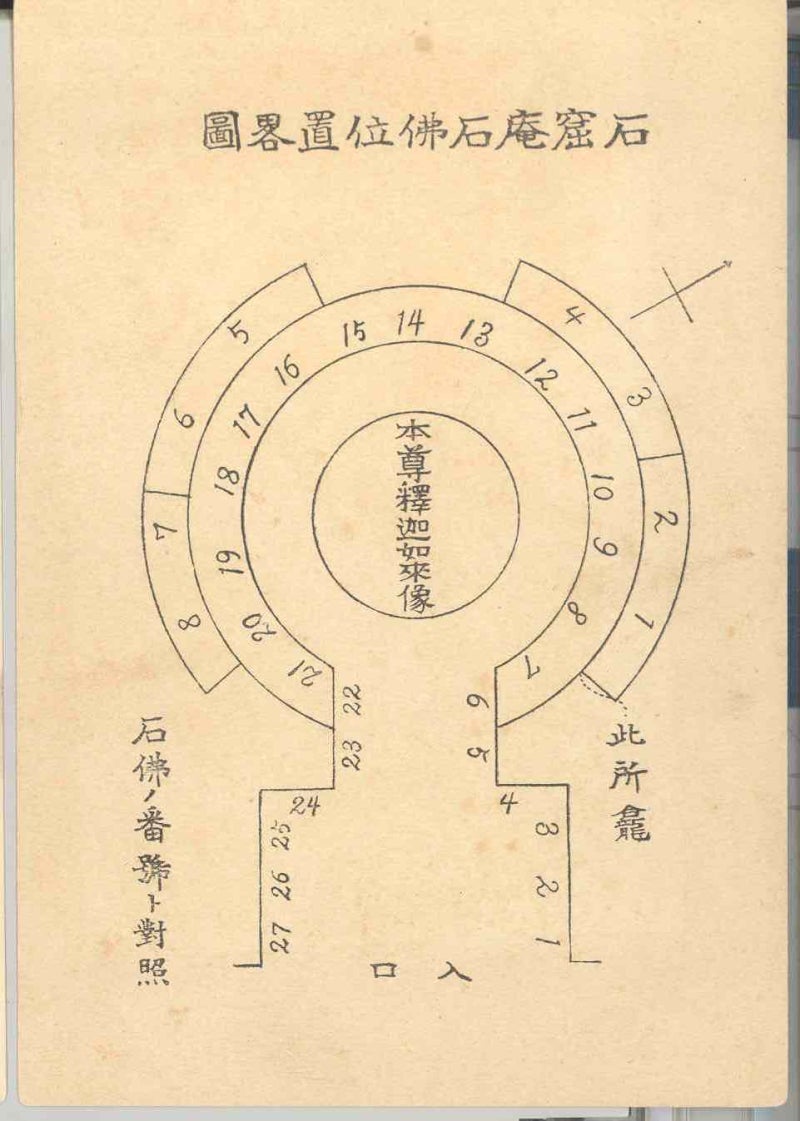 石窟庵石佛位置畧圖
4
3
2
1
5
6
7
8
15 14 13
16
17
18
19
20
21
22
23
24
25
26
27
12
11
10
9
8
7
6
5
4
3
2
1
本尊釋迦如來像
此所龕
石佛ノ番號ト對照
入口